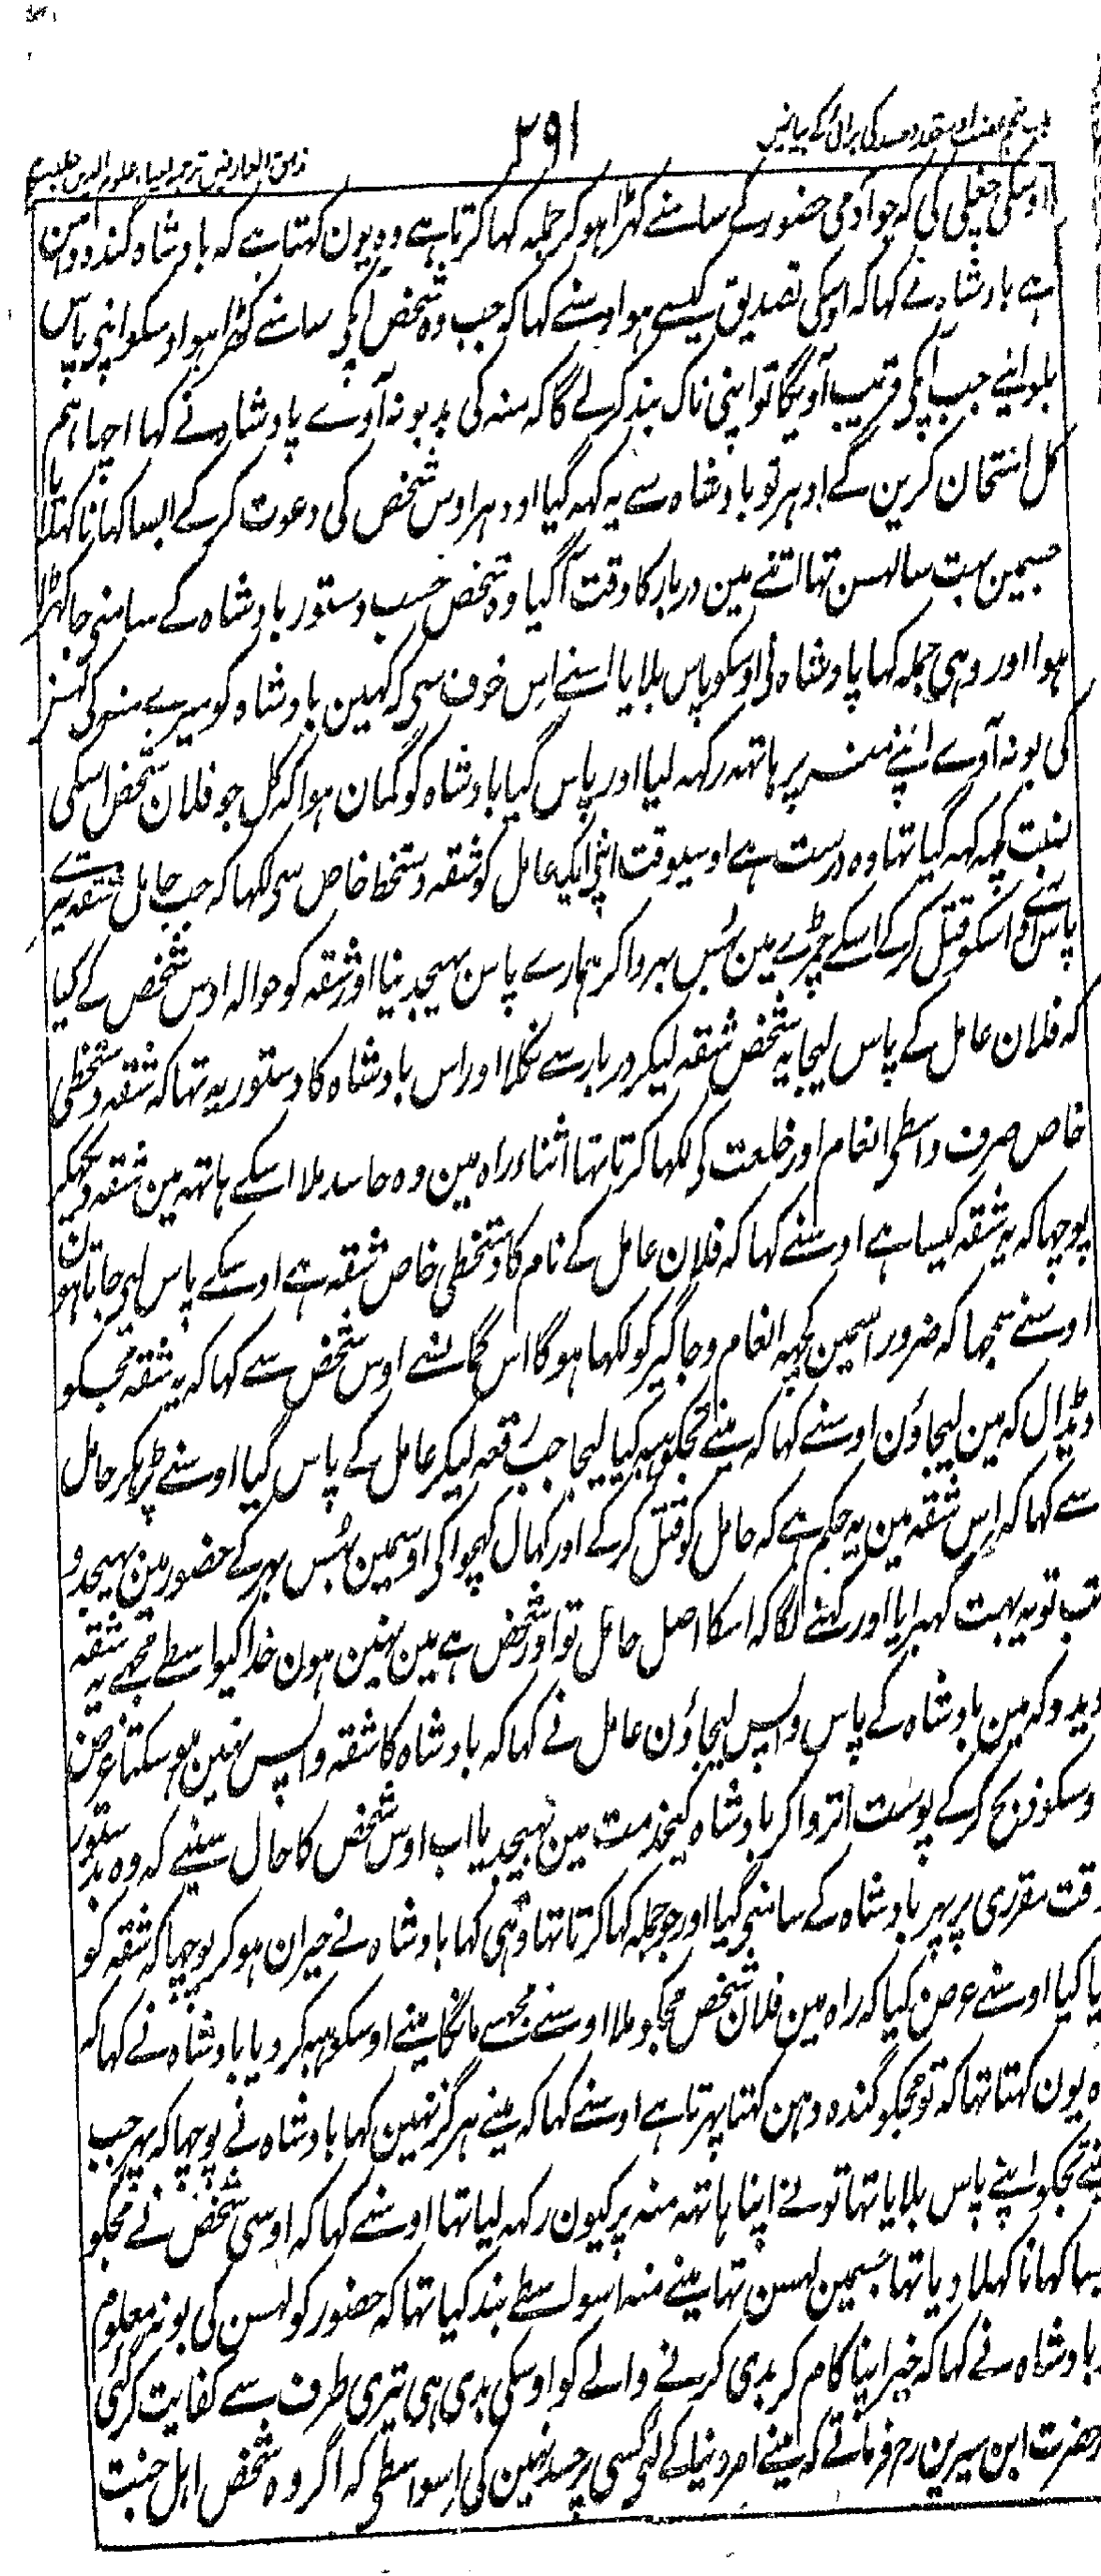 ۲۹۱
اوسکی چغلی کی کہ جو آدمی حضور کے سامنے کہڑا ہو کر جملہ کہا کرتا ہے وہ یون کہتا ہے کہ بادشاہ گندہ دہن
ہے بادشاہ نے کہا کہ اوسکی تصدیق کیسے ہو اوسنے کہا کہ جب وہ شخص آپکی سامنے کھڑا ہو اوسکو اپنی پاس
بلوائیے جب آپکی قریب آویگا تو اپنی ناک بند کرلے گا کہ منہ کی بدبو نہ آوے بادشاہ نے کہا اچہا ہم
کل امتحان کرین گے ادہر تو بادشاہ سے یہ کہہ گیا اودہر اوس شخص کی دعوت کر کے ایسا کہانا کہلایا
جسمین بہت سا لہسن تہا اتنے مین دربار کا وقت آگیا وہ شخص حسب دستور بادشاہ کے سامنی جا کہڑا
ہوا اور وہی جملہ کہا بادشاہ نی اوسکو پاس بلایا اسنے اس خوف سی کہ کہین بادشاہ کو میرے منہ کی لہسن
کی بو نہ آوے اپنے منہ پر ہاتہہ رکہہ لیا اور پاس گیا بادشاہ کو گمان ہوا کہ کل جو فلان شخص اسکی
نسبت کچہہ کہہ گیا تہا وہ درست ہے اوسیوقت اپنی ایک عامل کو شقہ دستخط خاص سی لکہا کہ جب حامل شقہ تیرے
پاس آوے اسکو قتل کر کے اسکے چمڑے مین بُس بہروا کر ہمارے پاس بہیجدینا اور شقہ کو حوالہ اوس شخص کے کیا
کہ فلان عامل کے پاس لیجا یہ شخص شقہ لیکر دربار سے نکلا اور اس بادشاہ کا دستور یہ تہا کہ شقہ دستخطی
خاص صرف واسطی انعام اور خلعت کی لکہا کرتا تہا اثناء راہ مین وہ حاسد ملا اسکے ہاتہہ مین شقہ دیکہکر
پوچہا کہ یہ شقہ کیسا ہے اوسنے کہا کہ فلان عامل کے نام کا دستخطی خاص شقہ ہے اوسکے پاس لیی جاتا ہون
اوسنے سمجہا کہ ضرور اسمین کچہہ انعام و جاگیر کو لکہا ہوگا اس گمانسے اوس شخص سے کہا کہ یہ شقہ مجکو
دیڈال کہ مین لیجاؤن اوسنے کہا کہ مینے تجکو ہبہ کیا لیجا جب رقعہ لیکر عامل کے پاس گیا اوسنے پڑہکر حامل
سے کہا کہ اس شقہ مین یہ حکم ہے کہ حامل کو قتل کر کے اور کہال کہچوا کی اوسمین بُس بہر کے حضور مین بہیجدو
تب تو یہ بہت گہبرایا اور کہنے لگا کہ اسکا اصل حامل تو اور شخص ہے مین نہین ہون خدا کیواسطے مجھے یہ شقہ
دیدو کہ مین بادشاہ کے پاس واپس لیجاؤن عامل نے کہا کہ بادشاہ کا شقہ واپس نہین ہو سکتا غرض
وسکو ذبح کر کے پوست اتروا کر بادشاہ کیخدمت مین بہیجدیا اب اوس شخص کا حال سنیے کہ وہ بدستور
وقت مقرری پر پہر بادشاہ کے سامنی گیا اور جو جملہ کہا کرتا تہا وہی کہا بادشاہ نے حیران ہو کر پوچہا کہ شقہ کو
یا کیا اوسنے عرض کیا کہ راہ مین فلان شخص مجکو ملا اوسنے مجہسے مانگا مینے اوسکو ہبہ کر دیا بادشاہ نے کہا کہ
ہ یون کہتا تہا کہ تو مجکو گندہ دہن کہتا پہرتا ہے اوسنے کہا کہ مینے ہرگز نہین کہا بادشاہ نے پوچہا کہ پہر جب
ینے تجکو اپنے پاس بلایا تہا تو نے اپنا ہاتہہ منہ پر کیون رکہہ لیا تہا اوسنے کہا کہ اوسی شخص نے مجکو
یسا کہانا کہلا دیا تہا جسمین لہسن تہا مینے منہ اسواسطے بند کیا تہا کہ حضور کو لہسن کی بو نہ معلوم
بادشاہ نے کہا کہ خیر اپنا کام کر بدی کرنے والے کو اوسکی بدی ہی تیری طرف سے کفایت کر گئی
حضرت ابن سیرین رح فرماتے کہ مینے امر دنیا کے لئی کسی پر حسد نہین کی اسواسطی کہ اگر وہ شخص اہل جنت